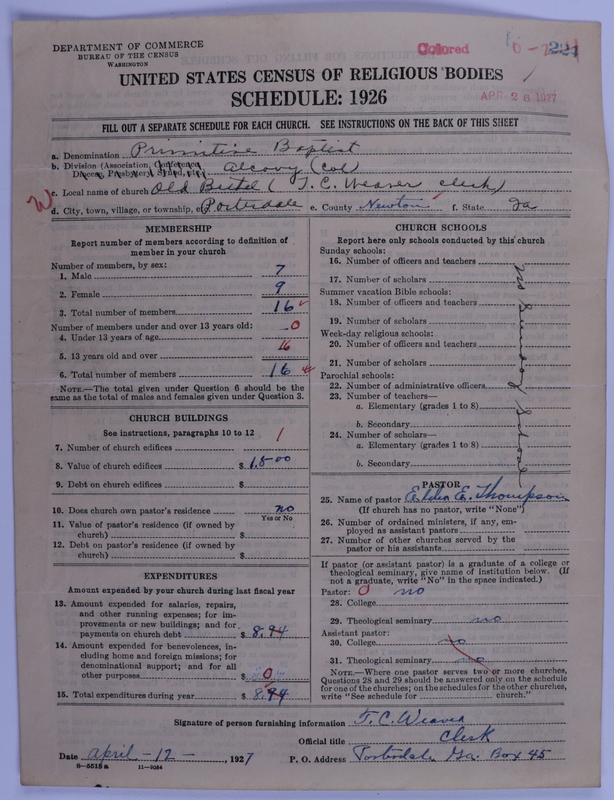 DEPARTMENT OF COMMERCE
BUREAU OF THE CENSUS
WASHINGTON
Colored
UNITED STATES CENSUS OF RELIGIOUS BODIES
SCHEDULE: 1926
APR 26 1927
FILL OUT A SEPARATE SCHEDULE FOR EACH CHURCH. SEE INSTRUCTIONS ON THE BACK OF THIS SHEET
a. Denomination Primitive Baptist
b. Division (Association, Conference, Diocese, Presbytery, Synod, etc.) Alcovy (Col)
c. Local name of church Old Bethel (T. C. Weaver clerk)
d. City, town, village, or township, etc. Porterdale e. County Newton f. State Ga
MEMBERSHIP
Report number of members according to definition of
member in your church
Number of members, by sex:
1. Male 7
2. Female 9
3. Total number of members 16
Number of members under and over 13 years old:
4. Under 13 years of age 0
5. 13 years old and over 16
6. Total number of members 16
NOTE.—The total given under Question 6 should be the
same as the total of males and females given under Question 3.
CHURCH BUILDINGS
See instructions, paragraphs 10 to 12
7. Number of church edifices 1
8. Value of church edifices $ 1,500
9. Debt on church edifices $
10. Does church own pastor's residence no
Yes or No
11. Value of pastor's residence (if owned by
church) $
12. Debt on pastor's residence (if owned by
church) $
EXPENDITURES
Amount expended by your church during last fiscal year
13. Amount expended for salaries, repairs,
and other running expenses; for im-
provements or new buildings; and for
payments on church debt $ 8.94
14. Amount expended for benevolences, in-
cluding home and foreign missions; for
denominational support; and for all
other purposes $ 0
15. Total expenditures during year $ 8.94
CHURCH SCHOOLS
Report here only schools conducted by this church
Sunday schools:
16. Number of officers and teachers
17. Number of scholars
Summer vacation Bible schools:
18. Number of officers and teachers
19. Number of scholars
Week-day religious schools:
20. Number of officers and teachers
21. Number of scholars
Parochial schools:
22. Number of administrative officers
23. Number of teachers—
a. Elementary (grades 1 to 8)
b. Secondary
24. Number of scholars—
a. Elementary (grades 1 to 8)
b. Secondary
no Sunday School
PASTOR
25. Name of pastor Elder E. Thompson
(If church has no pastor, write "None")
26. Number of ordained ministers, if any, em-
ployed as assistant pastors
27. Number of other churches served by the
pastor or his assistants
If pastor (or assistant pastor) is a graduate of a college or
theological seminary, give name of institution below. (If
not a graduate, write "No" in the space indicated.)
Pastor: 0 no
28. College
29. Theological seminary no
Assistant pastor:
30. College no
31. Theological seminary no
NOTE.—Where one pastor serves two or more churches,
Questions 28 and 29 should be answered only on the schedule
for one of the churches; on the schedules for the other churches,
write "See schedule for church."
Signature of person furnishing information T. C. Weaver
Official title Clerk
Date april - 12 - , 1927 P. O. Address Porterdale Ga. Box 45
8—5515a 11—9084